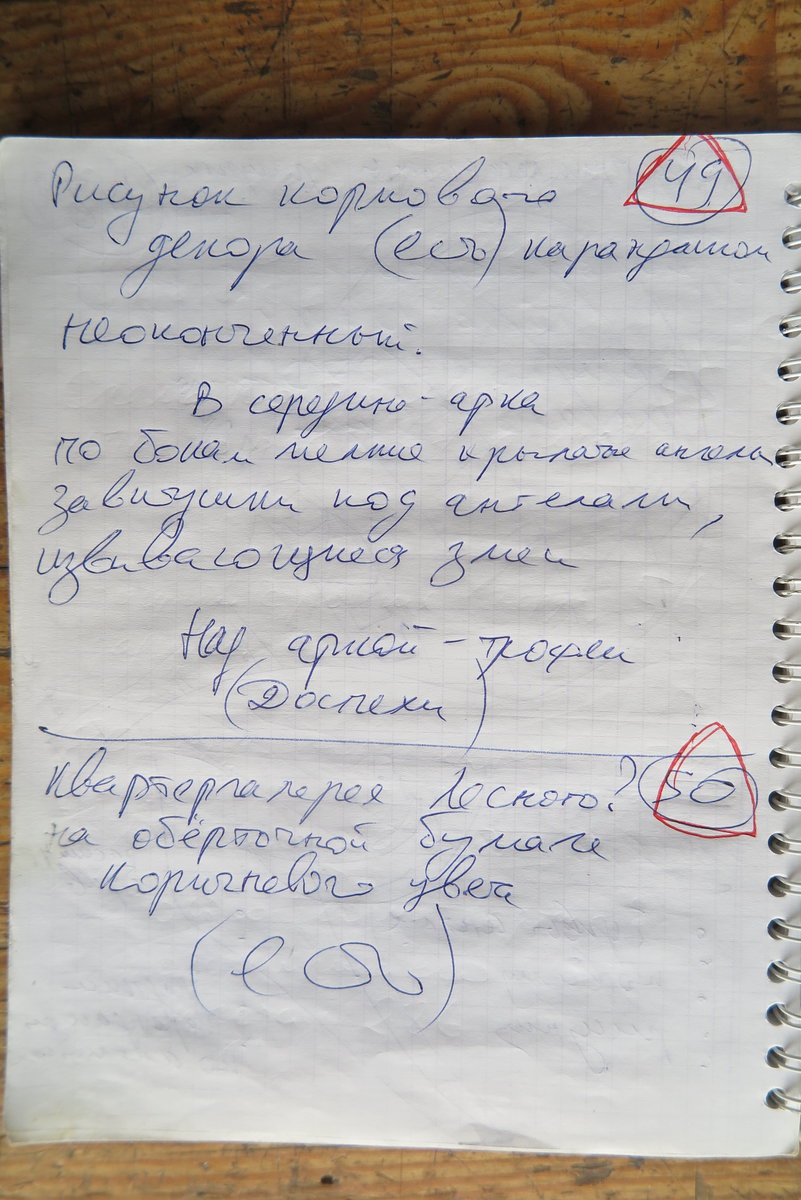 Рисунок кормового 49
декора (есть) карандашом
неоконченный.
В середине - арка
по бокам мелкие крылатые ангелы
завитушки под ангелами,
извивающиеся змеи
Над аркой - трофеи
(Доспехи)
Квартергалерея Лесного? 50
на обёрточной бумаге
коричневого цвета
(есть)